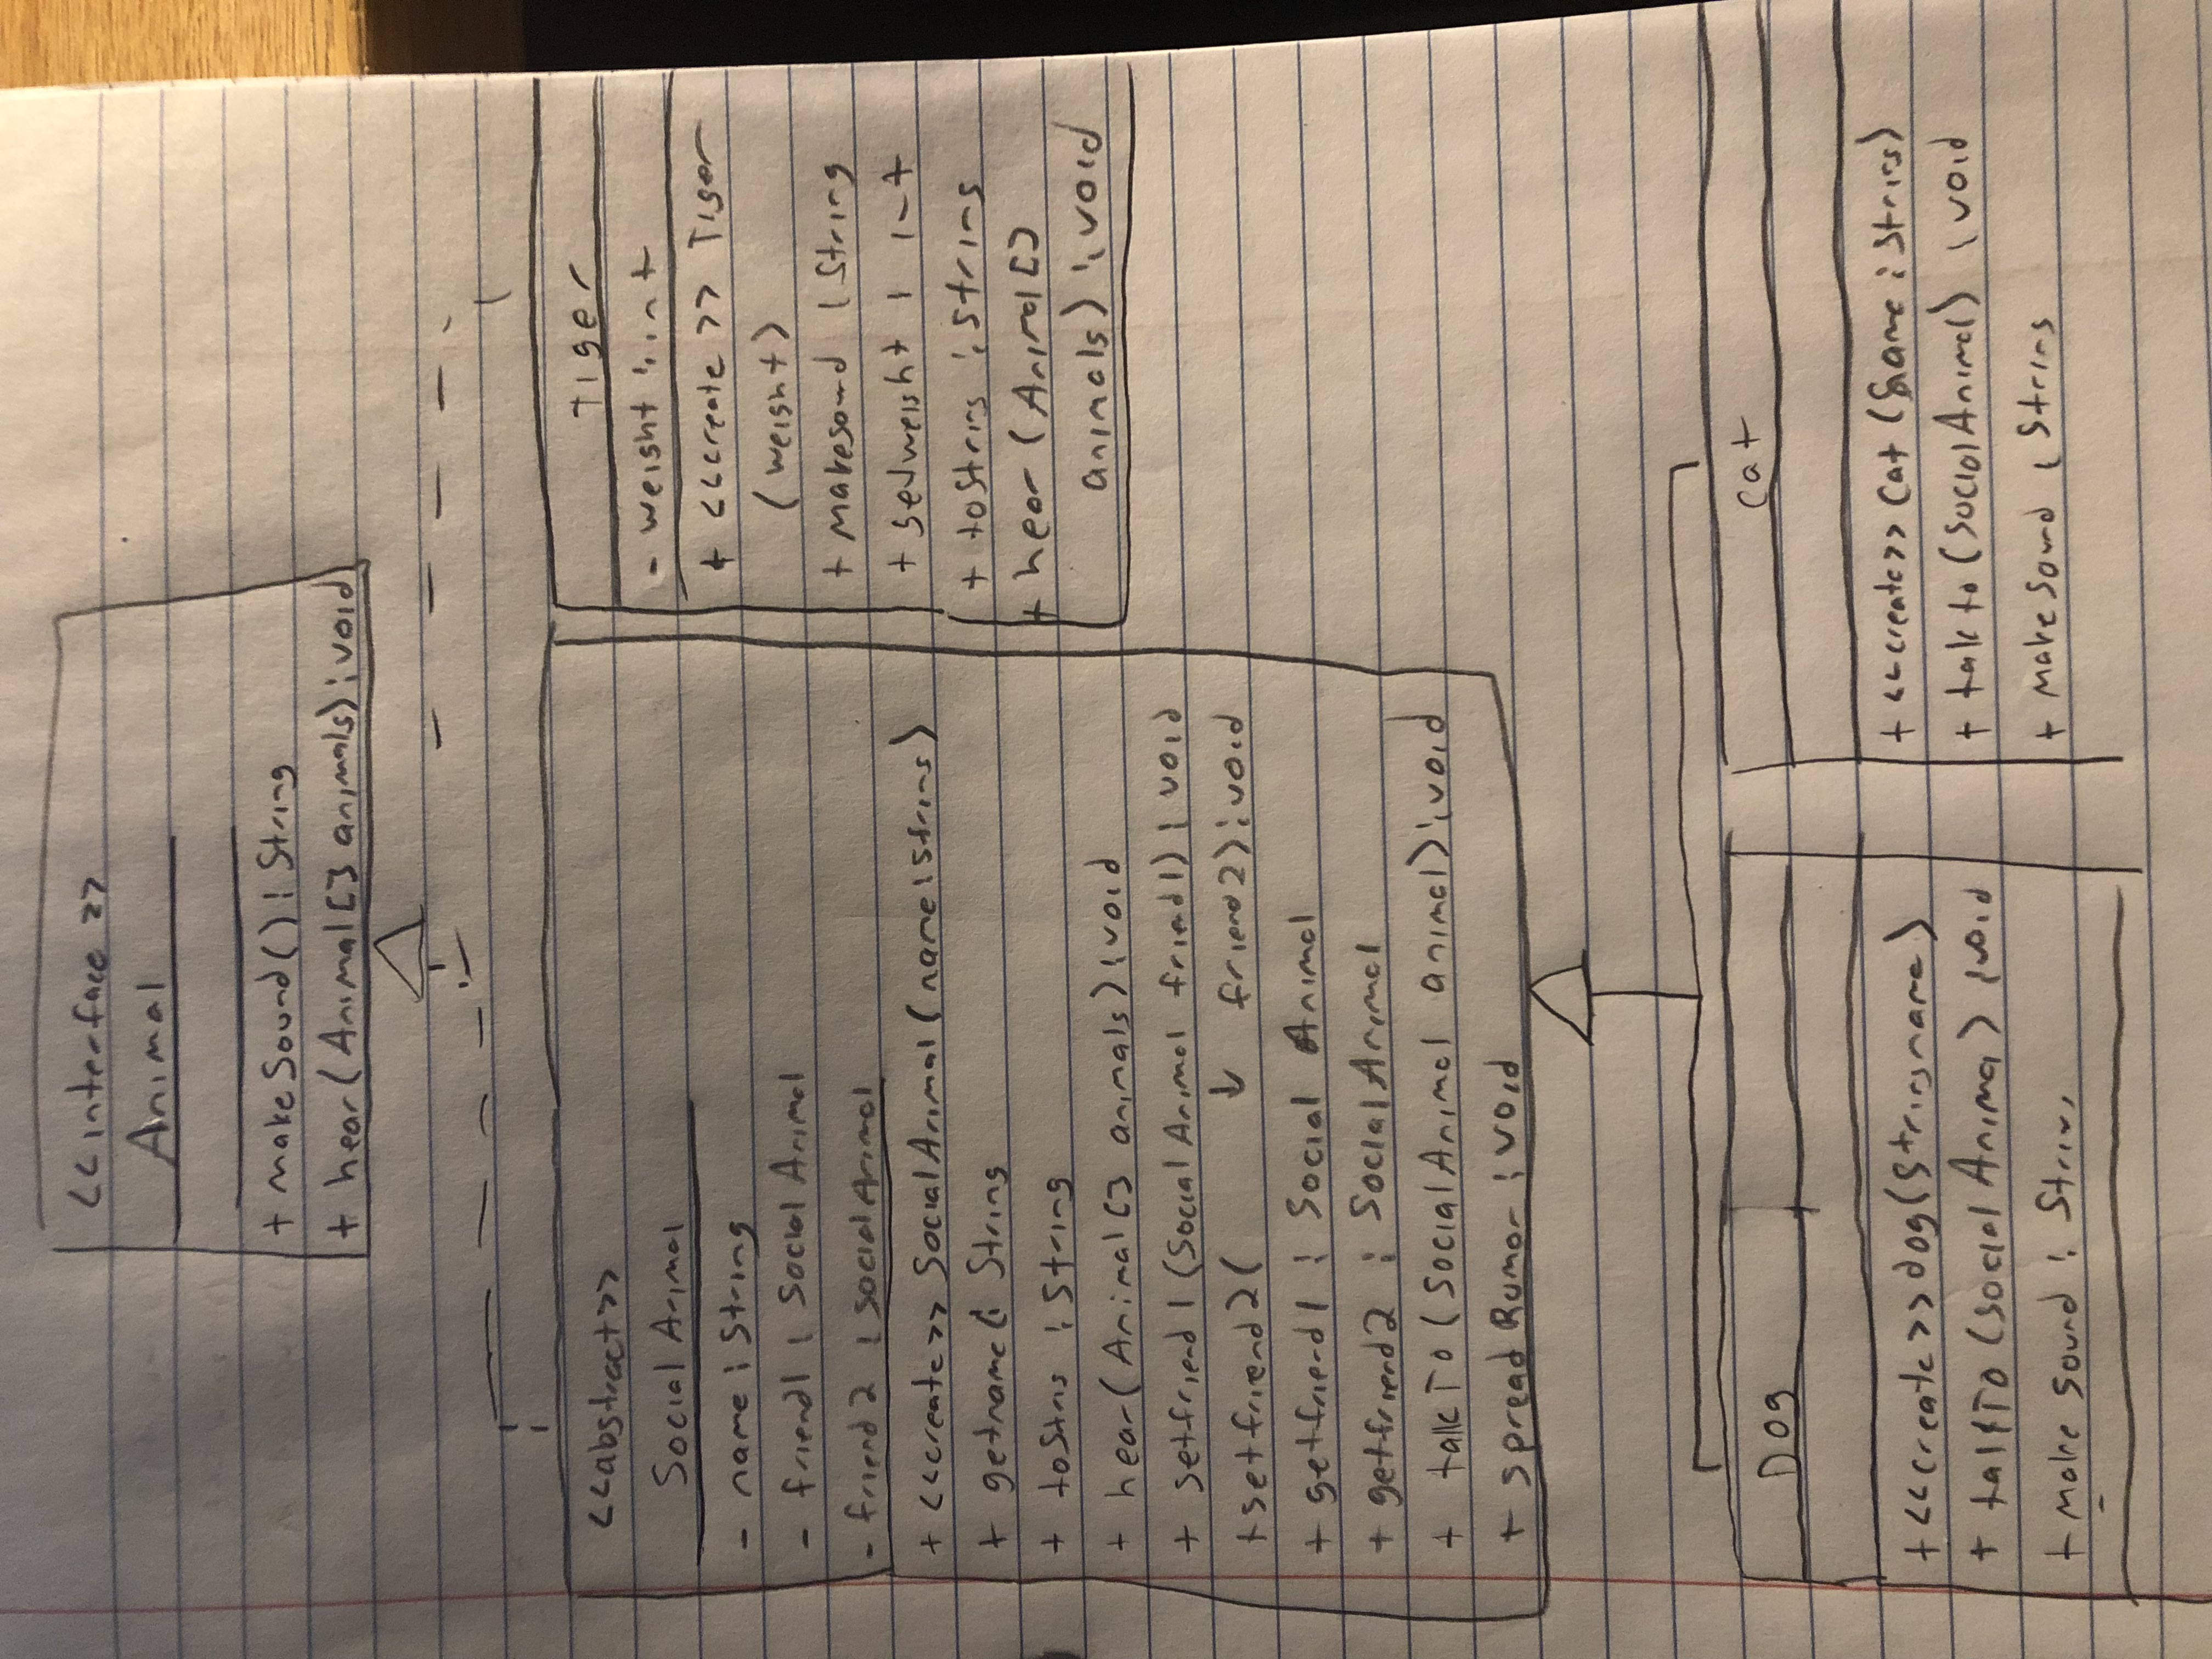 <<interface>>
Animal
+ makeSound() : String
+ hear(Animal[] animals) : void
<<abstract>>
Social Animal
- name : String
- friend1 : Social Animal
- friend2 : SocialAnimal
+ <<create>> SocialAnimal(name : String)
+ getname(: String
+ toString : String
+ hear(Animal[] animals) : void
+ setfriend1(Social Animal friend1) : void
+setfriend2( ↓ friend2) : void
+ getfriend1 : Social Animal
+ getfriend2 : SocialAnimal
+ talkTo (SocialAnimal animal) : void
+ spreadRumor : void
tiger
- weight : int
+ <<create>> Tiger
(weight)
+ makesound : String
+ setweight : int
+ toString : String
+ hear (Animal[]
animals) : void
Dog
+ <<create>> dog(String name)
+ talkTo (Social Animal) : void
+ Make sound : String
cat
+ <<create>> cat (name : String)
+ talk to (SocialAnimal) : void
+ make sound : String